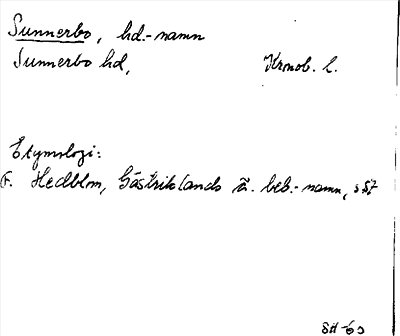 Sunnerbo, hd.-namn
Sunnerbo hd, Kronob. l.
Etymologi:
F. Hedblom, Gästriklands ä. beb.-namn, s 87
SH-63